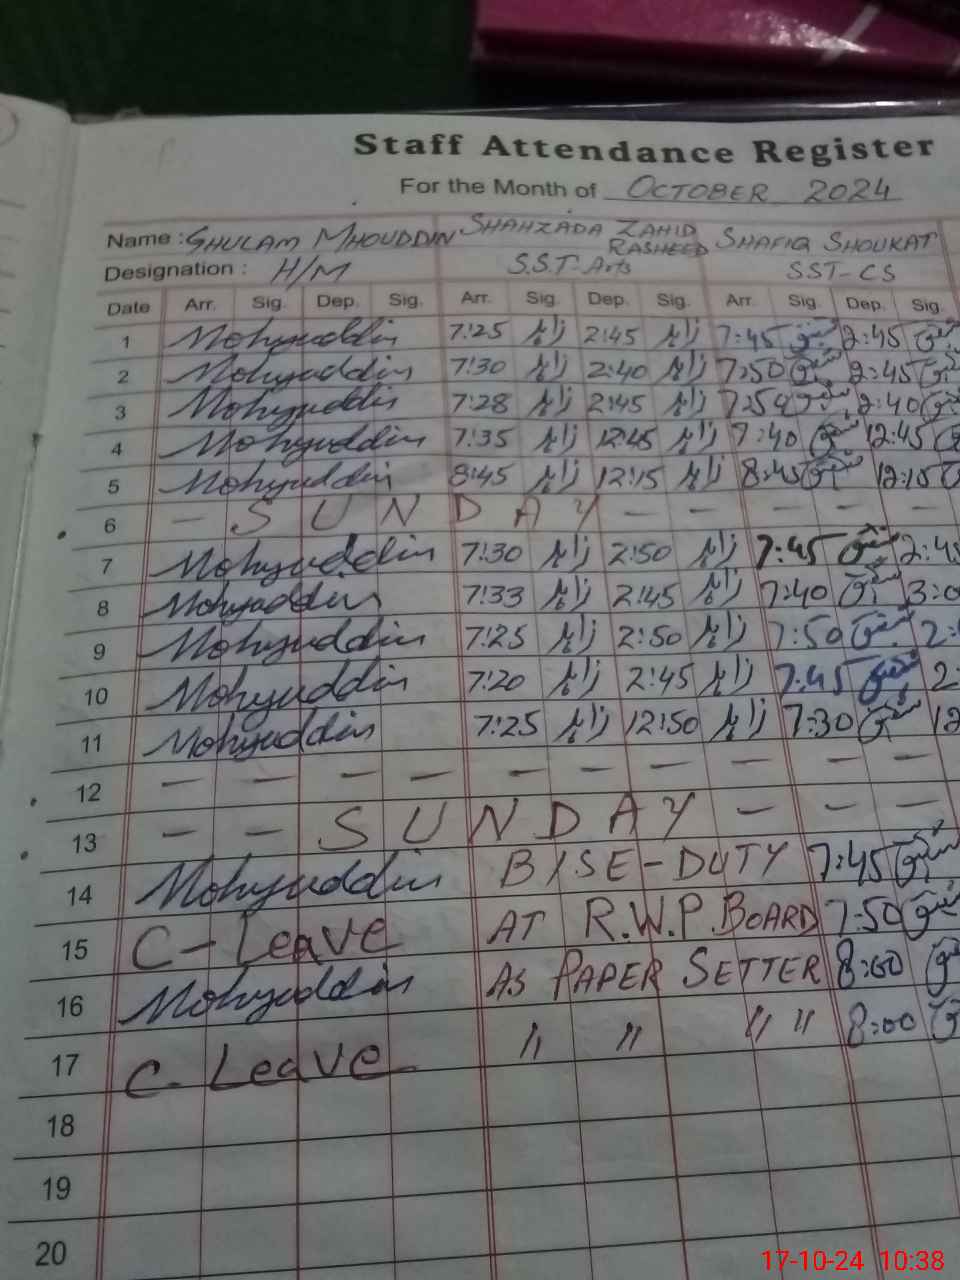 Staff Attendance Register
For the Month of OCTOBER 2024
Name : GHULAM MHOUDDIN SHAHZADA ZAHID RASHEED SHAFIQ SHOUKAT
Designation : H/M S.S.T-Arts SST-CS
Date Arr. Sig. Dep. Sig. Arr. Sig. Dep. Sig. Arr. Sig. Dep. Sig.
1 Mohyuddin 7:25 زاہد 2:45 زاہد 7:45 شفیق 2:45 شفیق
2 Mohyuddin 7:30 زاہد 2:40 زاہد 7:50 شفیق 2:45 شفیق
3 Mohyuddin 7:28 زاہد 2:45 زاہد شفیق 2:40
4 Mohyuddin 7:35 زاہد 12:45 زاہد 7:40 شفیق 12:45
5 Mohyuddin 8:45 زاہد 12:15 زاہد 8:45 شفیق 12:15
6 — SUNDAY — — — — —
7 Mohyuddin 7:30 زاہد 2:50 زاہد 7:45 شفیق
8 Mohyuddin 7:33 زاہد 2:45 زاہد 7:40 شفیق
9 Mohyuddin 7:25 زاہد 2:50 زاہد 7:50 شفیق
10 Mohyuddin 7:20 زاہد 2:45 زاہد 7:45 شفیق
11 Mohyuddin 7:25 زاہد 12:50 زاہد 7:30 شفیق
12 — — — — — — — — — — —
13 — — SUNDAY — — —
14 Mohyuddin BISE-DUTY 7:45 شفیق
15 C-Leave AT R.W.P. BOARD 7:50 شفیق
16 Mohyuddin AS PAPER SETTER 8:00
17 C-Leave " " " " 8:00
18
19
20
17-10-24 10:38